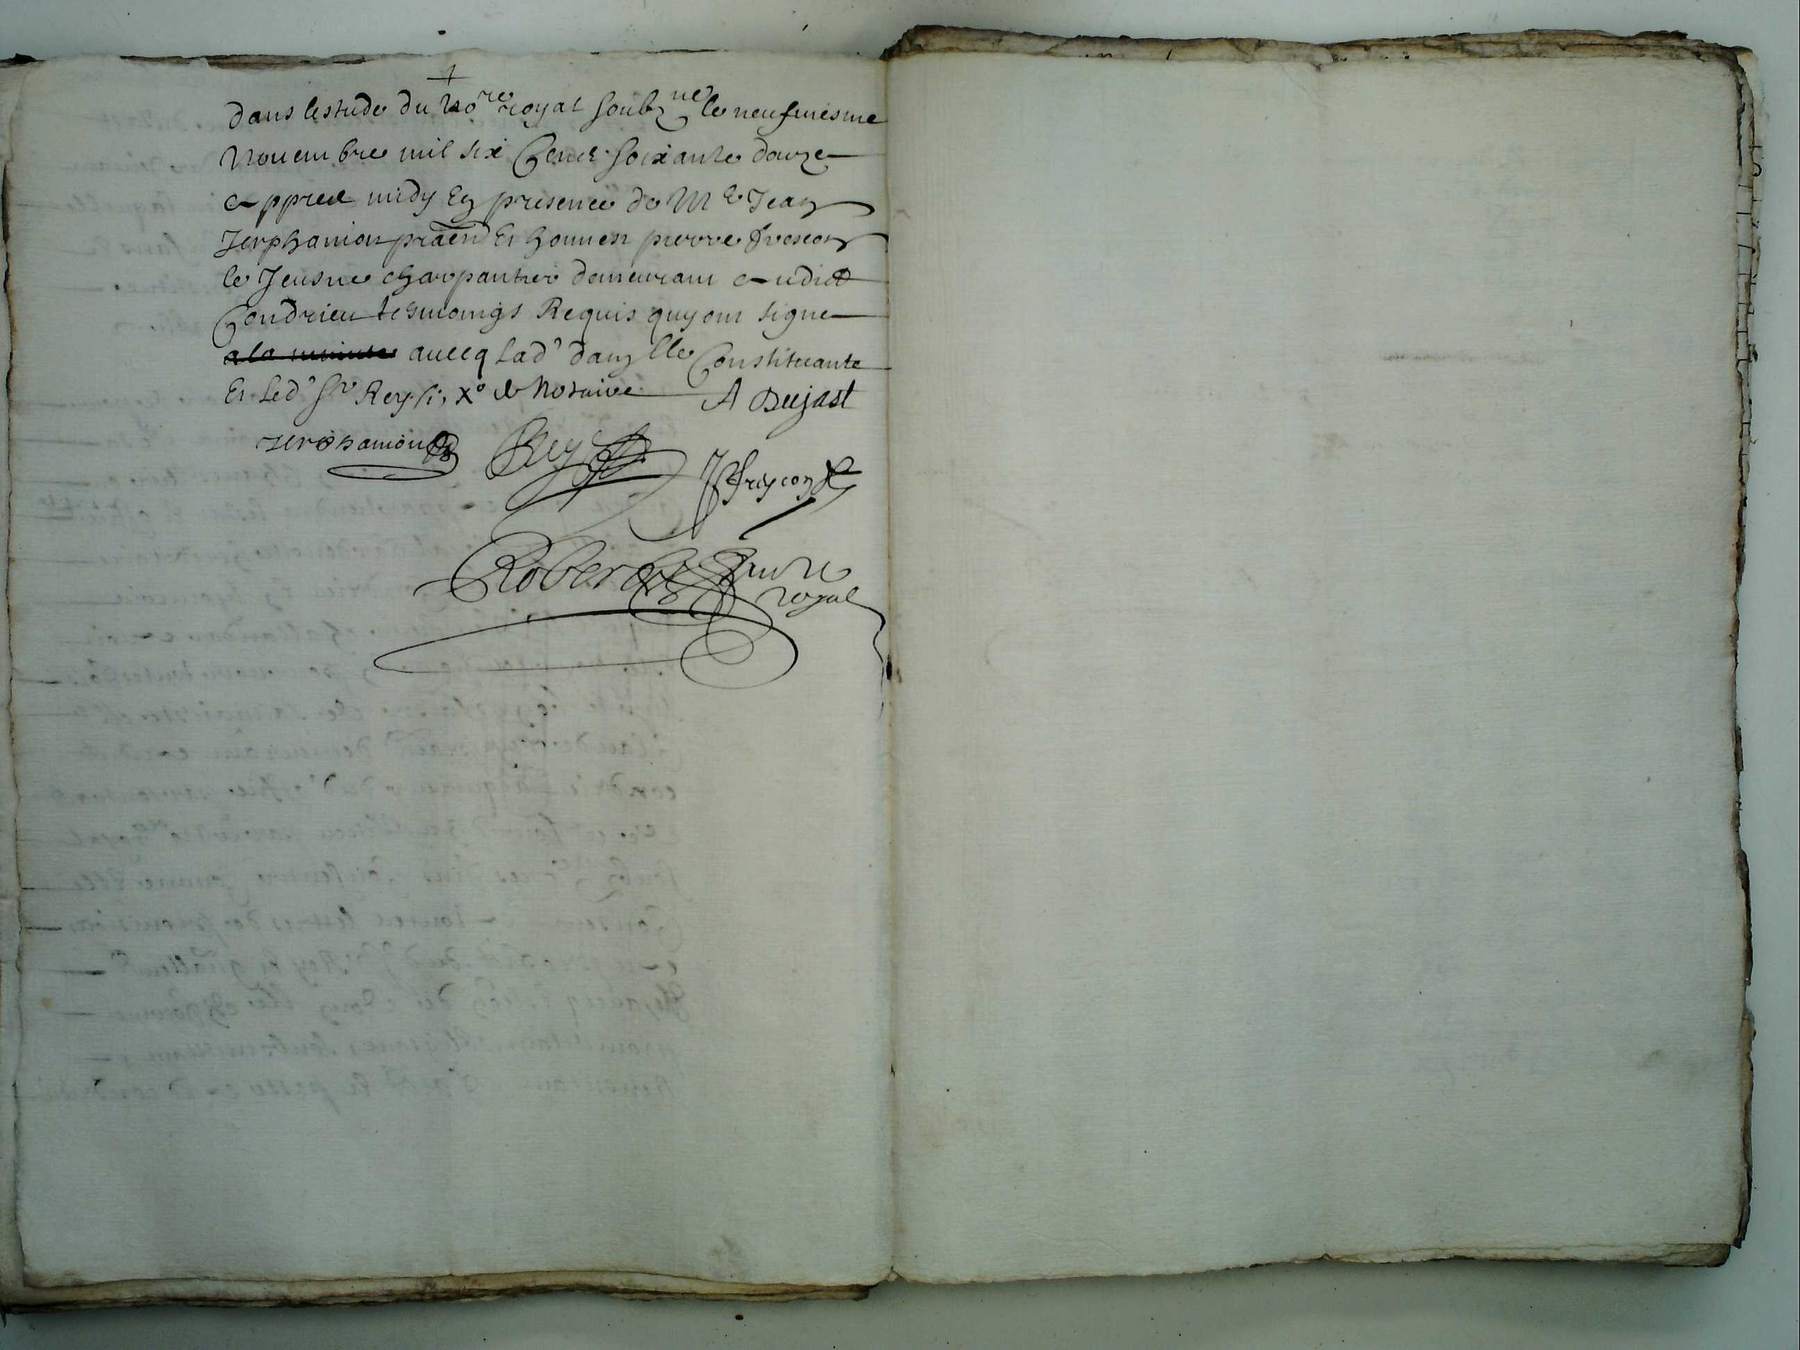 dans lestude du No.re royal soubz.ne le neufviesme
Novembre mil six Cent soixante douze
appres midy En presence de Me Jean
Jerphanion praen Et honnest pierre frescon
le Jeusne charpantier demeurant audict
Condrieu tesmoings Requis quy ont signe
a la minute avecq lad' dam.lle Constituante
Et led' Sr Rey
de Notaire
A Dujast
Jerphanion
Rey
P frescon
Robert
Royal